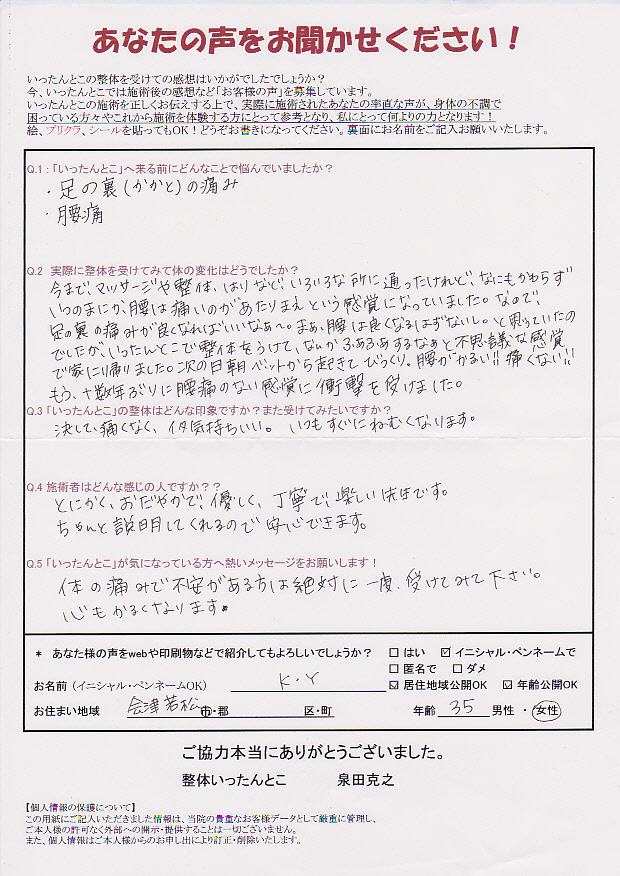 あなたの声をお聞かせください！
いったんとこの整体を受けての感想はいかがでしたでしょうか？
今、いったんとこでは施術後の感想など「お客様の声」を募集しています。
いったんとこの施術を正しくお伝えする上で、実際に施術されたあなたの率直な声が、身体の不調で
困っている方々やこれから施術を体験する方にとって参考となり、私にとって何よりの力となります！
絵、プリクラ、シールを貼ってもOK！どうぞお書きになってください。裏面にお名前をご記入お願いいたします。
Q.1：「いったんとこ」へ来る前にどんなことで悩んでいましたか？
・足の裏（かかと）の痛み
・腰痛
Q.2 実際に整体を受けてみて体の変化はどうでしたか？
今まで、マッサージや整体、はりなど、いろいろな所に通ったけれど、なにもかわらず
いつのまにか、腰は痛いのがあたりまえという感覚になっていました。なので、
足の裏の痛みが良くなればいいなぁ〜。まぁ、腰は良くなるはずないし。と思っていたの
でしたが、いったんとこで整体をうけて、なんかふわふわするなぁと不思議な感覚
で家に帰りました。次の日朝ベットから起きてびっくり。腰がかるい!!痛くない!!
もう、十数年ぶりに腰痛のない感覚に衝撃を受けました。
Q.3 「いったんとこ」の整体はどんな印象ですか？また受けてみたいですか？
決して、痛くなく、イタ気持ちいい。いつもすぐにねむくなります。
Q.4 施術者はどんな感じの人ですか？？
とにかく、おだやかで、優しく、丁寧で、楽しい先生です。
ちゃんと説明してくれるので安心できます。
Q.5 「いったんとこ」が気になっている方へ熱いメッセージをお願いします！
体の痛みで不安がある方は絶対に一度、受けてみて下さい。
心もかるくなります。
＊ あなた様の声をwebや印刷物などで紹介してもよろしいでしょうか？ □ はい ☑ イニシャル・ペンネームで
□ 匿名で □ ダメ
お名前（イニシャル・ペンネームOK） K・Y ☑ 居住地域公開OK ☑ 年齢公開OK
お住まい地域 会津若松 市・郡 区・町 年齢 35 男性・女性
ご協力本当にありがとうございました。
整体いったんとこ 泉田克之
【個人情報の保護について】
この用紙にご記入いただきました情報は、当院の貴重なお客様データとして厳重に管理し、
ご本人様の許可なく外部への開示・提供することは一切ございません。
また、個人情報はご本人様からのお申し出により訂正・削除いたします。